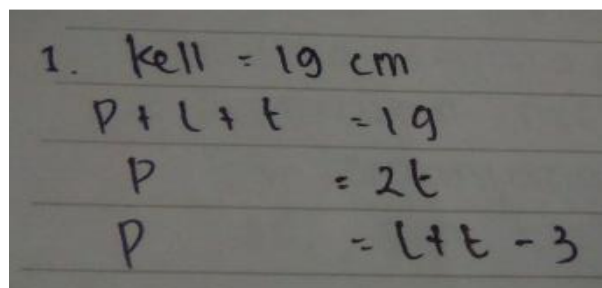 1. Kell = 19 cm
P + l + t = 19
P = 2t
P = l + t - 3